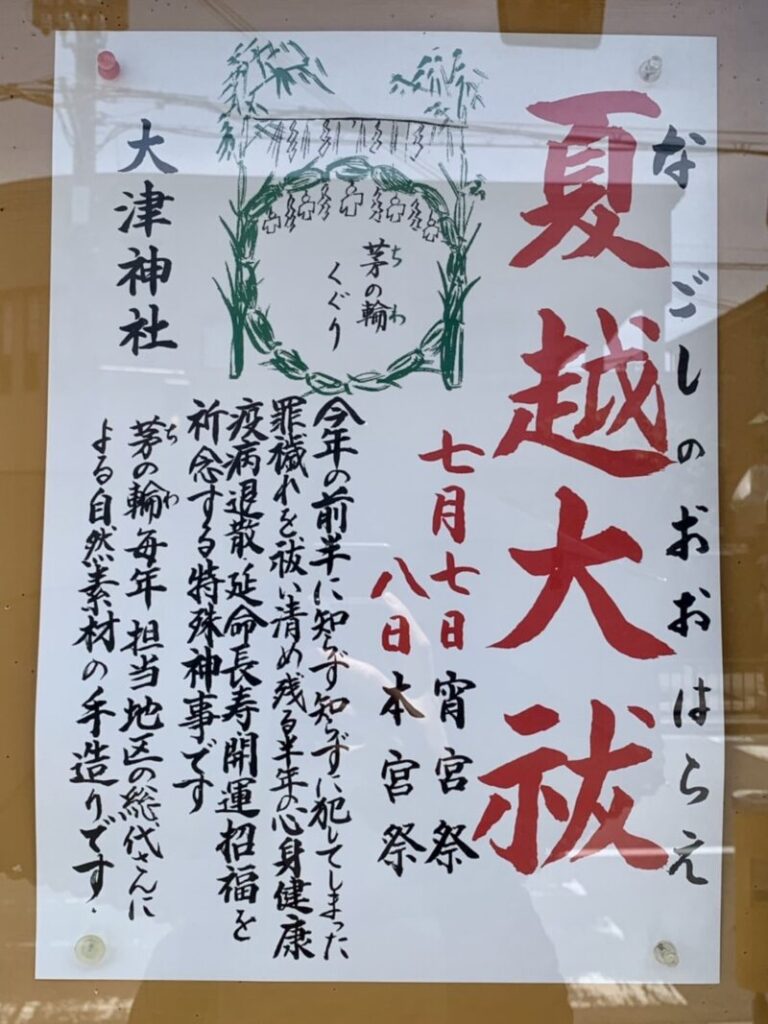 なごしのおおはらえ
夏越大祓
七月七日 宵宮祭
八日 本宮祭
茅の輪
ちわ
くぐり
今年の前半に知らず知らずに犯してしまった
罪穢れを祓い清め残る半年の心身健康
疫病退散・延命長寿・開運招福を
祈念する特殊神事です
茅の輪毎年担当地区の総代さんに
ちわ
よる自然素材の手造りです.
大津神社